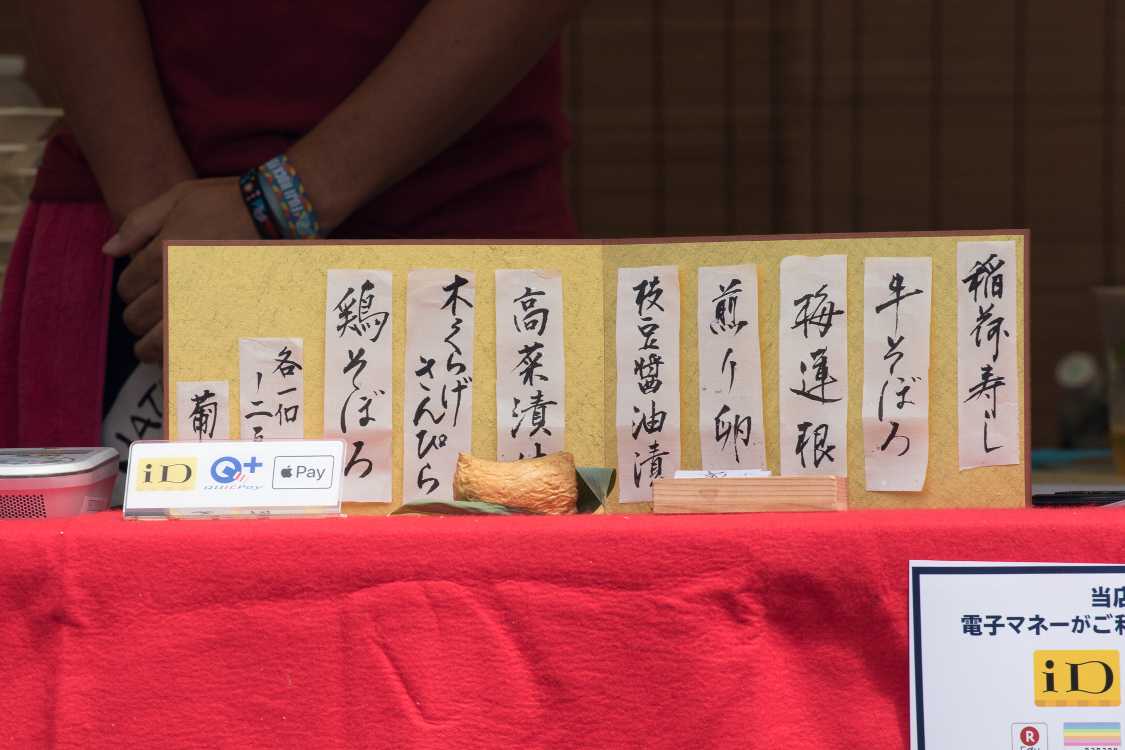 稲荷寿し
牛そぼろ
梅蓮根
煎り卵
枝豆醤油漬
高菜漬
木くらげ
さんぴら
鶏そぼろ
各一
一二
葡
iD
QUICPay
Pay
当店
電子マネーがご利
iD
R